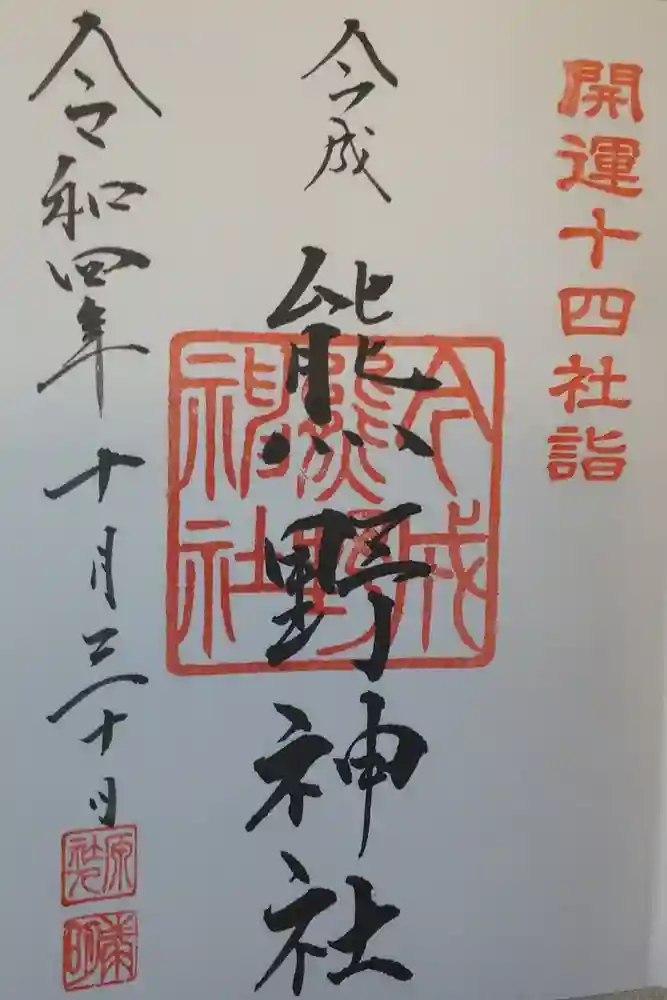 開運十四社詣
今成
熊野神社
今成
熊野
神社
令和四年十月三十日